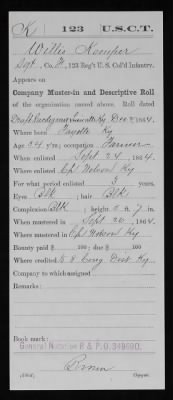 K | 123 | U.S.C.T.
Willis Kemper
Sgt, Co. F, 123 Reg't U. S. Col'd Infantry.
Appears on
Company Muster-in and Descriptive Roll
of the organization named above. Roll dated
Louisville Ky Dec 2 1864.
Where born Fayette Ky
Age 24 y'rs; occupation Farmer
When enlisted Sept 24, 1864.
Where enlisted Cp Nelson Ky
For what period enlisted 3 years.
Eyes Blk ; hair Blk
Complexion Blk ; height 5 ft. 7 in.
When mustered in Sept 26, 1864.
Where mustered in Cp Nelson Ky
Bounty paid $ 100; due $ 100
Where credited 5 Cong Dist Ky
Company to which assigned
Remarks:
Book mark:
General Notation R & P O. 349690.
(356f) Copyist.